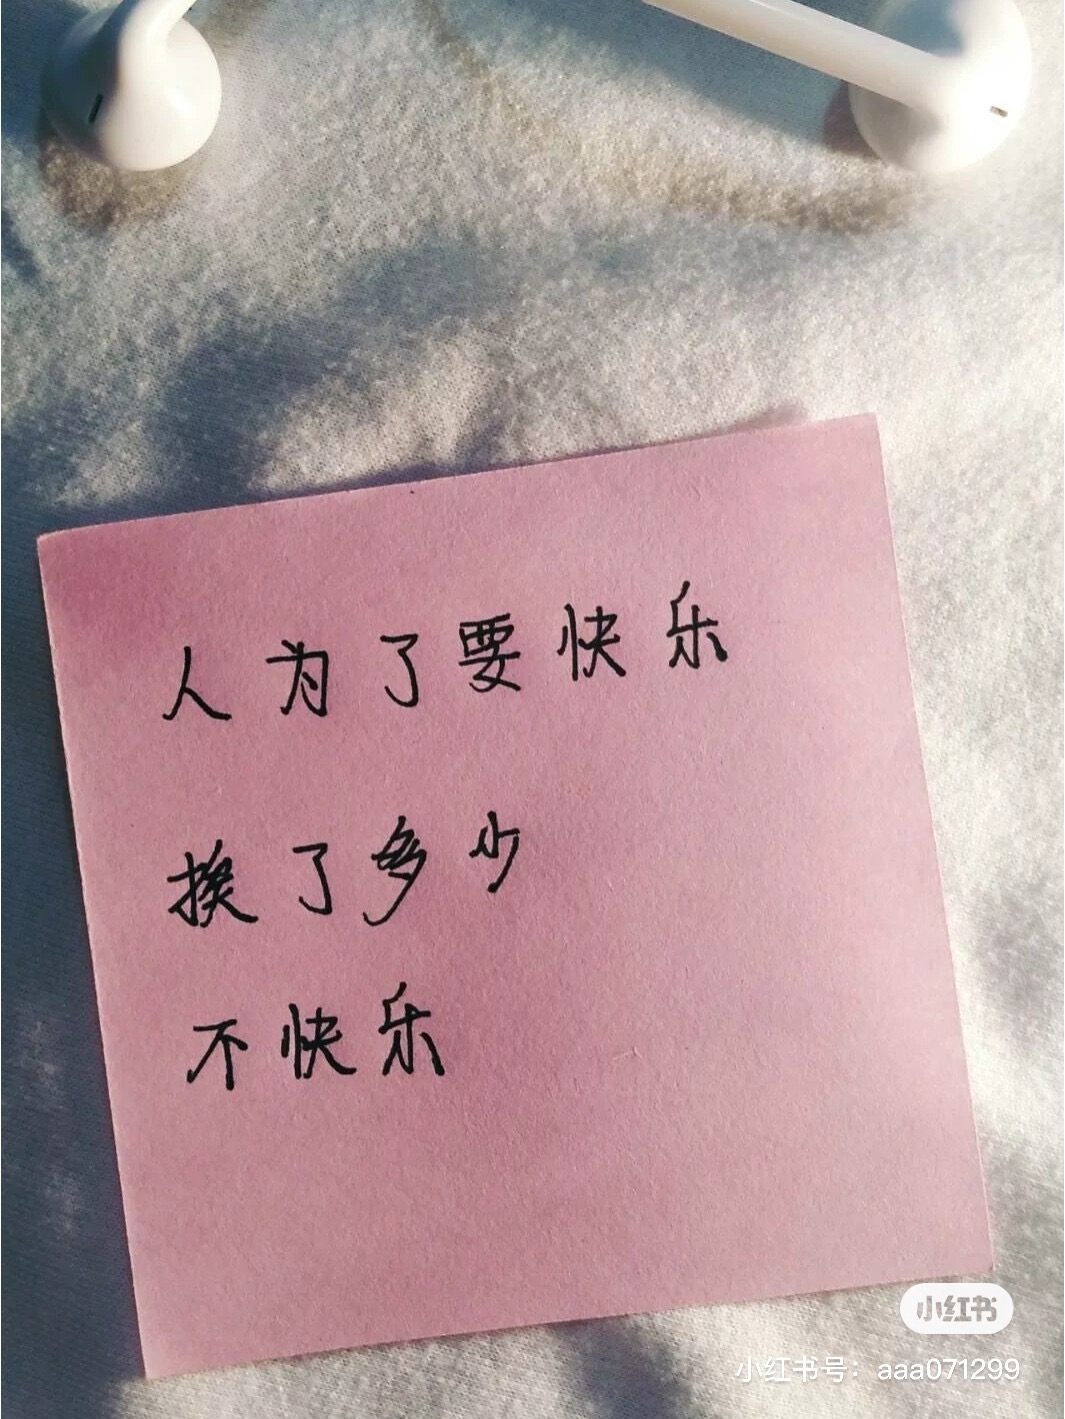 人为了要快乐
挨了多少
不快乐
小红书
小红书号：aaa071299